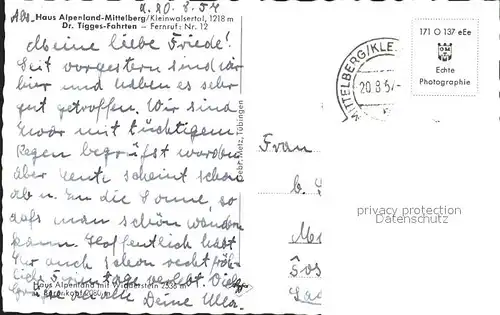 Abs. d. 20.8.57
Haus Alpenland-Mittelberg/Kleinwalsertal, 1218 m
Dr. Tigges-Fahrten – Fernruf: Nr. 12
Meine liebe Friede!
Seit vorgestern sind wir
hier und haben es sehr
gut getroffen. Wir sind
zwar mit tüchtigem
Regen begrüßt worden
aber heute scheint schon
ab u. zu die Sonne, so
daß man schön wandern
kann. Hoffentlich habt
Ihr auch schon recht fröh-
liche Ferientage verlebt. Dich
Haus Alpenland mit Widderstein 2536 m
Deine Ulla.
Gebr. Metz, Tübingen
MITTELBERG/KLE
20.8.57
171 O 137 eEe
Echte
Photographie
Frau
b.
privacy protection
Datenschutz